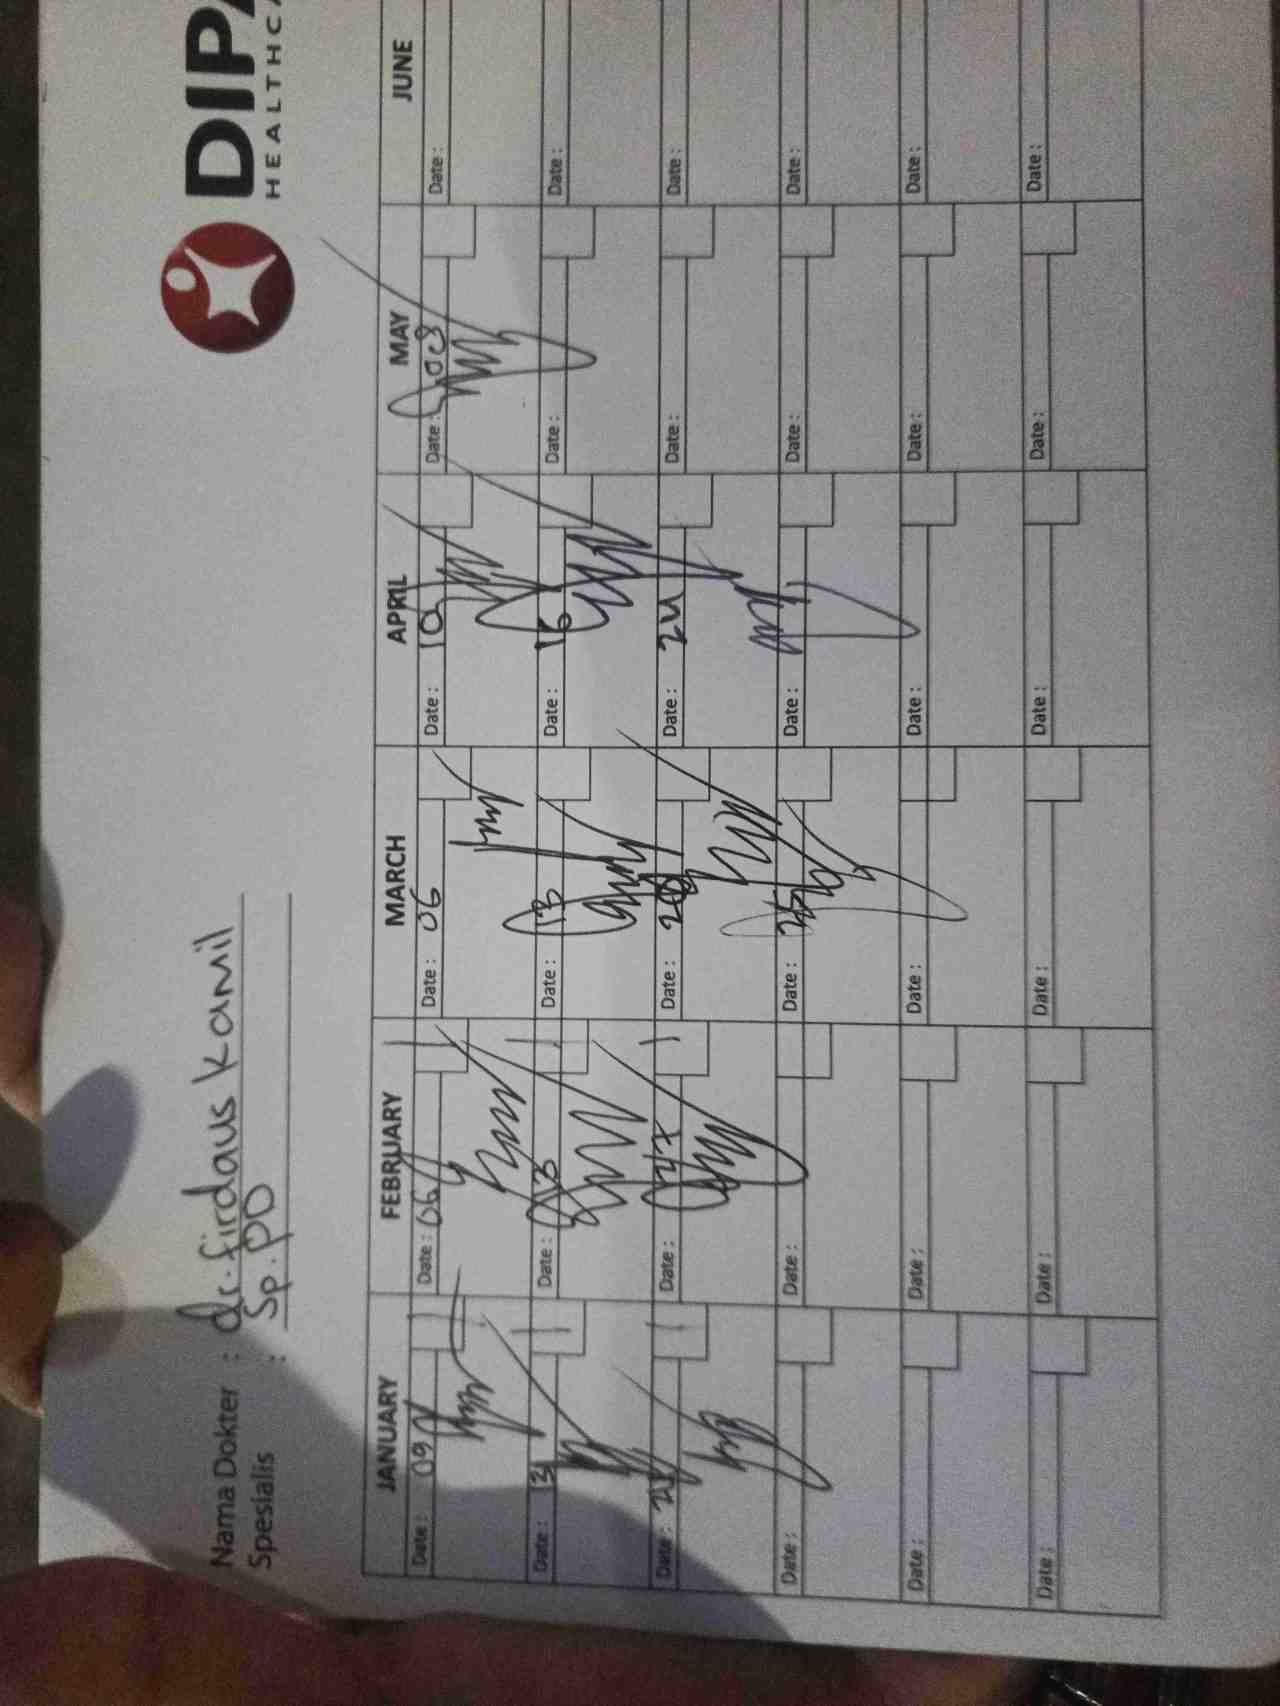 DIPA
HEALTHCA
Nama Dokter : dr. firdaus Kamil
Spesialis : Sp. PD
JANUARY FEBRUARY MARCH APRIL MAY JUNE
Date : 09 Date : 06 Date : 06 Date : 10 Date : 08 Date :
Date : 13 Date : 13 Date : 13 Date : 16 Date : Date :
Date : Date : 27 Date : 20 Date : 24 Date : Date :
Date : Date : Date : Date : Date : Date :
Date : Date : Date : Date : Date : Date :
Date : Date : Date : Date : Date : Date :